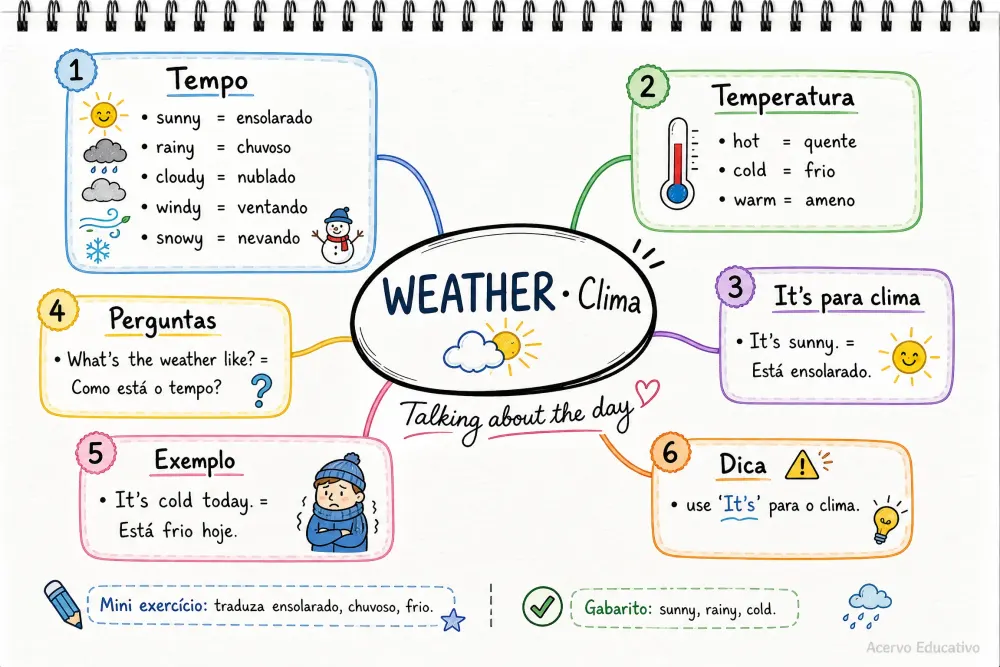 1
Tempo
• sunny = ensolarado
• rainy = chuvoso
• cloudy = nublado
• windy = ventando
• snowy = nevando
2
Temperatura
• hot = quente
• cold = frio
• warm = ameno
WEATHER · Clima
Talking about the day
3
It's para clima
• It's sunny. =
Está ensolarado.
4
Perguntas
• What's the weather like? =
Como está o tempo?
?
5
Exemplo
• It's cold today. =
Está frio hoje.
6
Dica
• use 'It's' para o clima.
Mini exercício: traduza ensolarado, chuvoso, frio.
Gabarito: sunny, rainy, cold.
Acervo Educativo